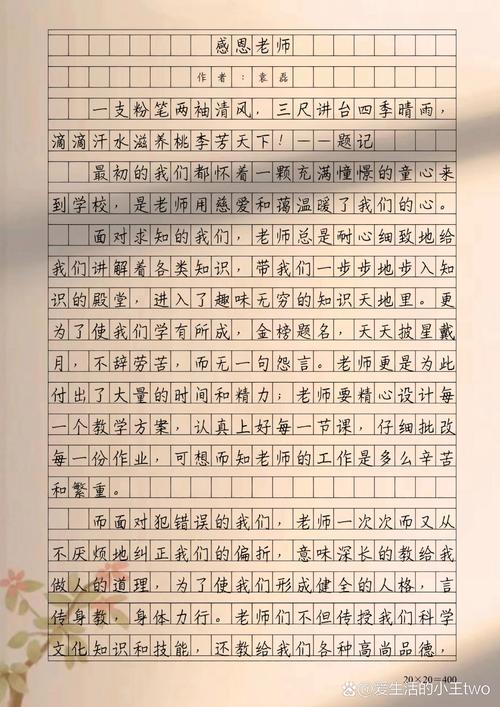 感恩老师
作者：袁磊
一支粉笔两袖清风，三尺讲台四季晴雨，
滴滴汗水滋养桃李芳天下！——题记
最初的我们都怀着一颗充满憧憬的童心来
到学校，是老师用慈爱和蔼温暖了我们的心。
面对求知的我们，老师总是耐心细致地给
我们讲解着各类知识，带我们一步步地步入知
识的殿堂，进入了趣味无穷的知识天地里。更
为了使我们学有所成，金榜题名，天天披星戴
月，不辞劳苦，而无一句怨言。老师更是为此
付出了大量的时间和精力；老师要精心设计每
一个教学方案，认真上好每一节课，仔细批改
每一份作业，可想而知老师的工作是多么辛苦
和繁重。
而面对犯错误的我们，老师一次次而又从
不厌烦地纠正我们的偏折，意味深长的教给我
做人的道理，为了使我们形成健全的人格，言
传身教，身体力行。老师们不但传授我们科学
文化知识和技能，还教给我们各种高尚品德，
20×20=400
@爱生活的小王two